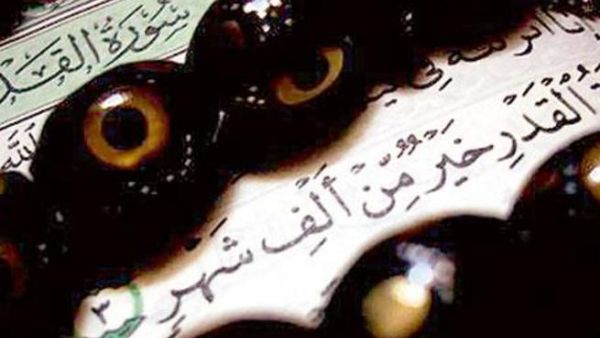 سُورَةُ القَد
اللَّه
فِي
الْقَدْرِ خَيْرٌ مِّنْ أَلْفِ شَهْرٍ ٣